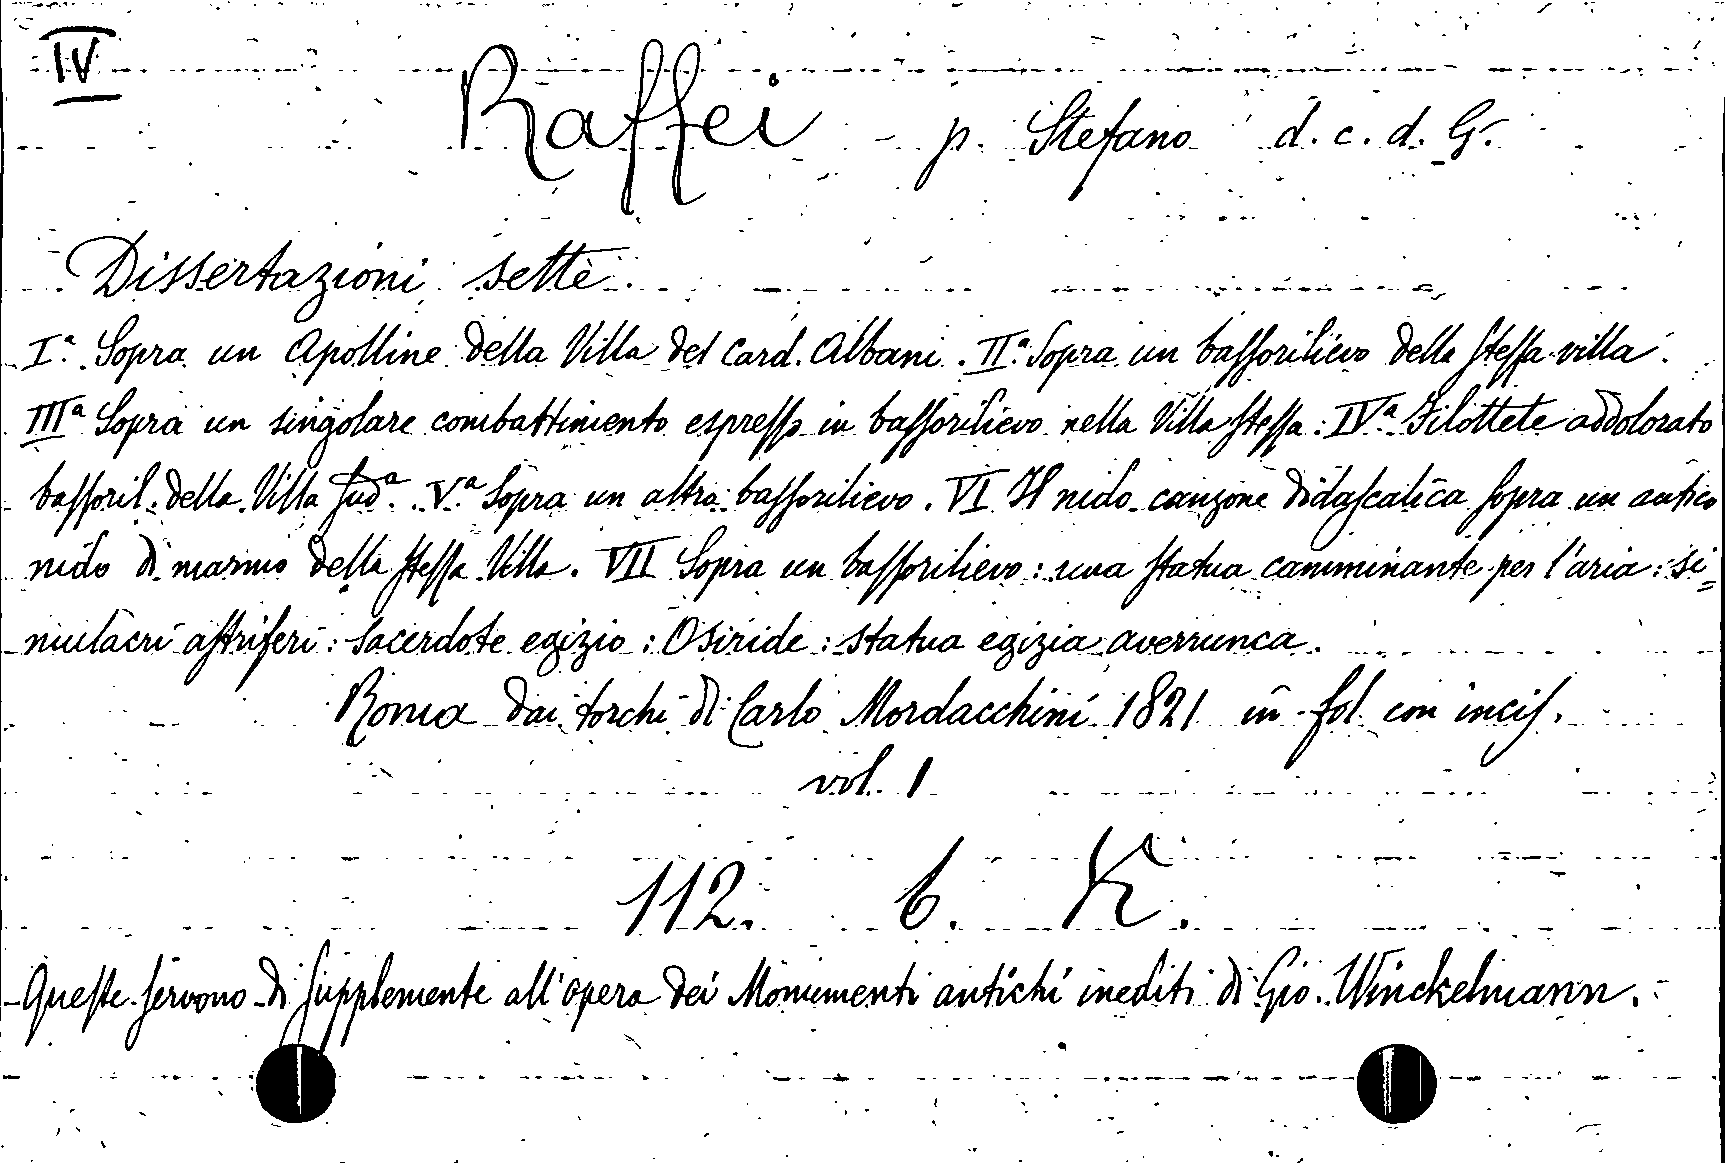 IV
Raffei p. Stefano d. c. d. G.
Dissertazioni sette.
Iª. Sopra un Apolline della Villa del Card. Albani. IIª. Sopra un bassorilievo della stessa villa.
IIIª Sopra un singolare combattimento espresso in bassorilievo nella Villa stessa. IVª Filottete addolorato
bassoril. della Villa sudª. Vª Sopra un altro bassorilievo. VI Il nido canzone didascalica sopra un antico
nido di marmo della stessa Villa. VII Sopra un bassorilievo: una statua camminante per l'aria: si=
mulacri astriferi: sacerdote egizio: Osiride: statua egizia averrunca.
Roma dai torchi di Carlo Mordacchini 1821 in fol. con incis.
vol. 1
112. 6. K.
Queste servono di supplemente all'opera dei Monumenti antichi inediti di Gio. Winckelmann.